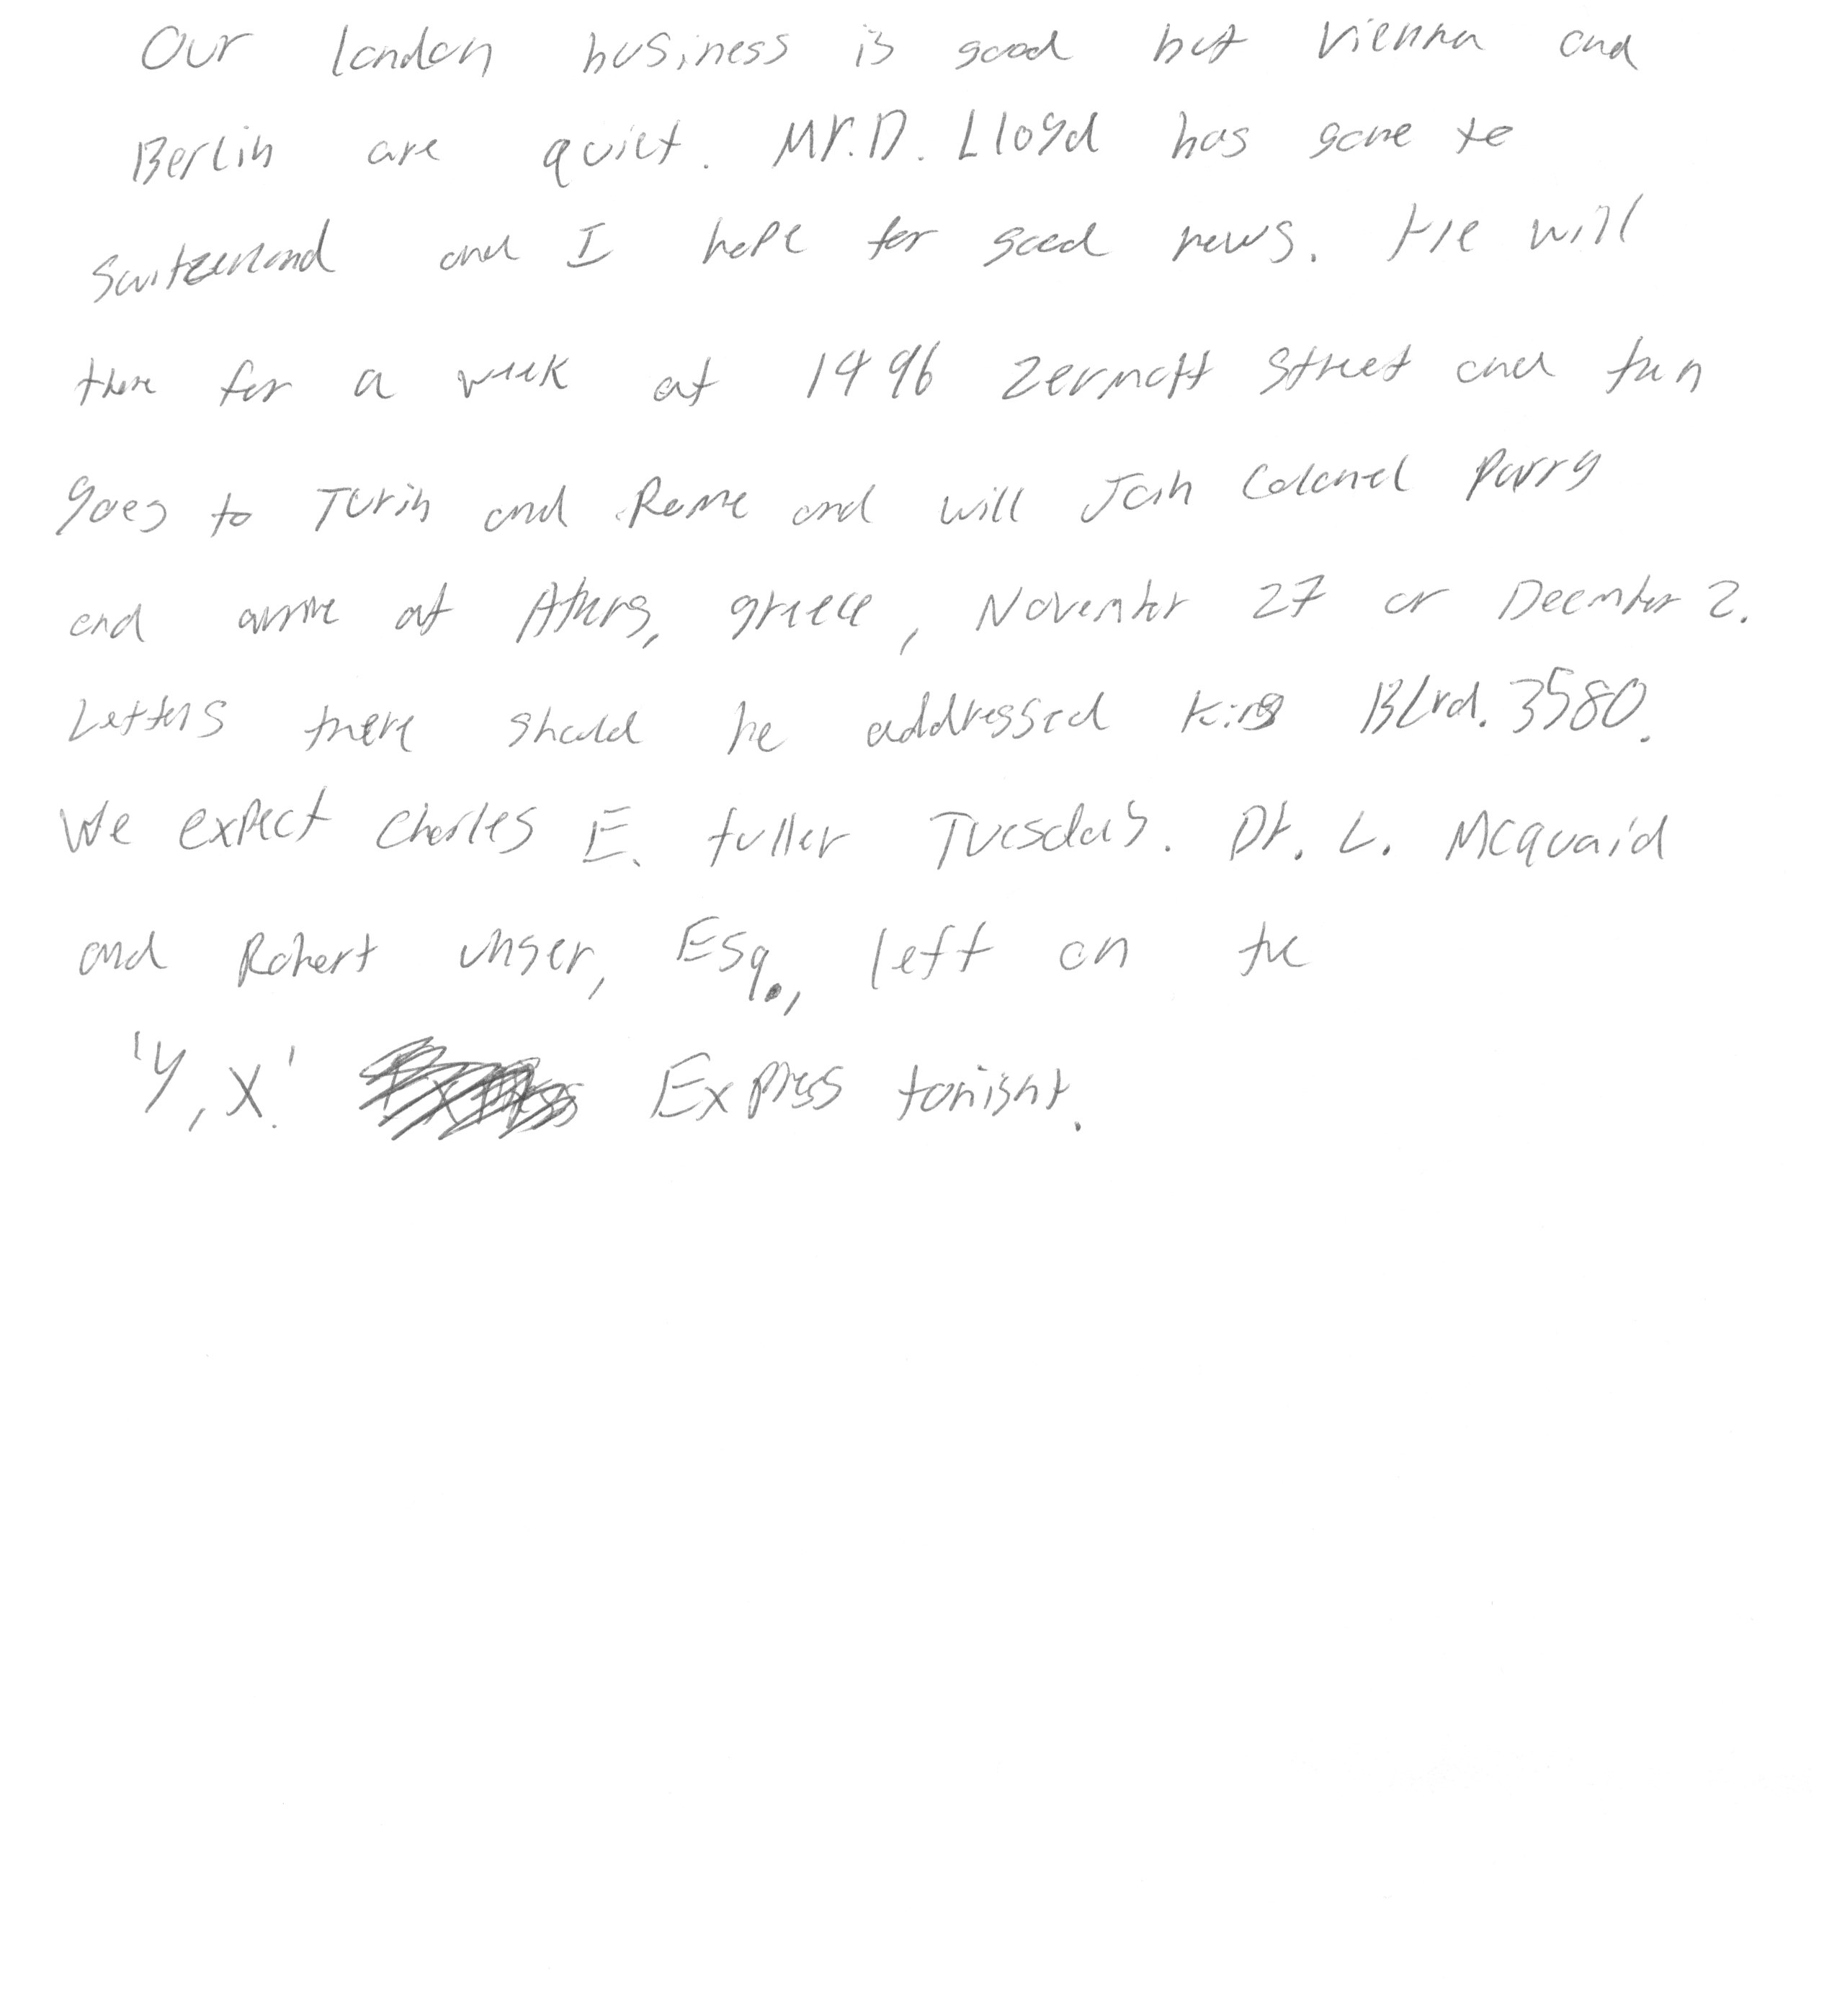 Our London business is good but Vienna and
Berlin are quiet. Mr. D. Lloyd has gone to
Switzerland and I hope for good news. He will
there for a week at 1496 Zermott Street and then
goes to Turin and Rome and will Join Colonel Parry
and arrive at Athens, greece, November 27 or December 2.
Letters there should be addressed King Blvd. 3580.
We expect Charles E. fuller Tuesday. Dr. L. McQuaid
and Robert Unger, Esq., left on the
'Y, X.' Express tonight.